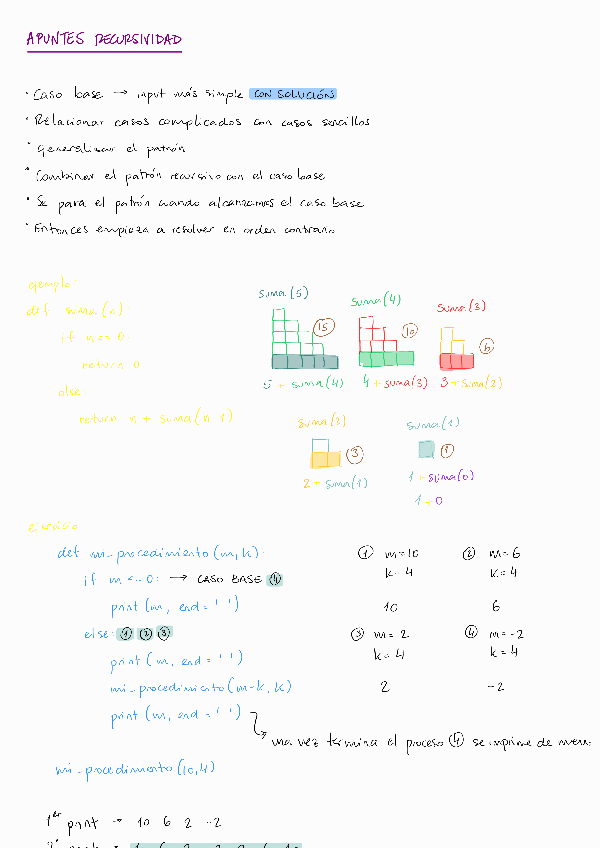 APUNTES RECURSIVIDAD
· Caso base → input más simple CON SOLUCIÓN
· Relacionar casos complicados con casos sencillos
· Generalizar el patrón
· Combinar el patrón recursivo con el caso base
· Se para el patrón cuando alcanzamos el caso base
· Entonces empieza a resolver en orden contrario
ejemplo:
def suma(n):
if n == 0:
return 0
else:
return n + suma(n-1)
suma(5)
15
5 + suma(4)
suma(4)
10
4 + suma(3)
suma(3)
6
3 + suma(2)
suma(2)
3
2 + suma(1)
suma(1)
1
1 + suma(0)
1 + 0
def mi_procedimiento(m,k):
if m <= 0: → CASO BASE ④
print(m, end = ' ')
else: ① ② ③
print(m, end = ' ')
mi_procedimiento(m-k, k)
print(m, end = ' ')
una vez termina el proceso ④ se imprime de nuevo
mi_procedimiento(10,4)
① m=10
k=4
10
② m=6
k=4
6
③ m=2
k=4
2
④ m=-2
k=4
-2
1er print → 10 6 2 -2